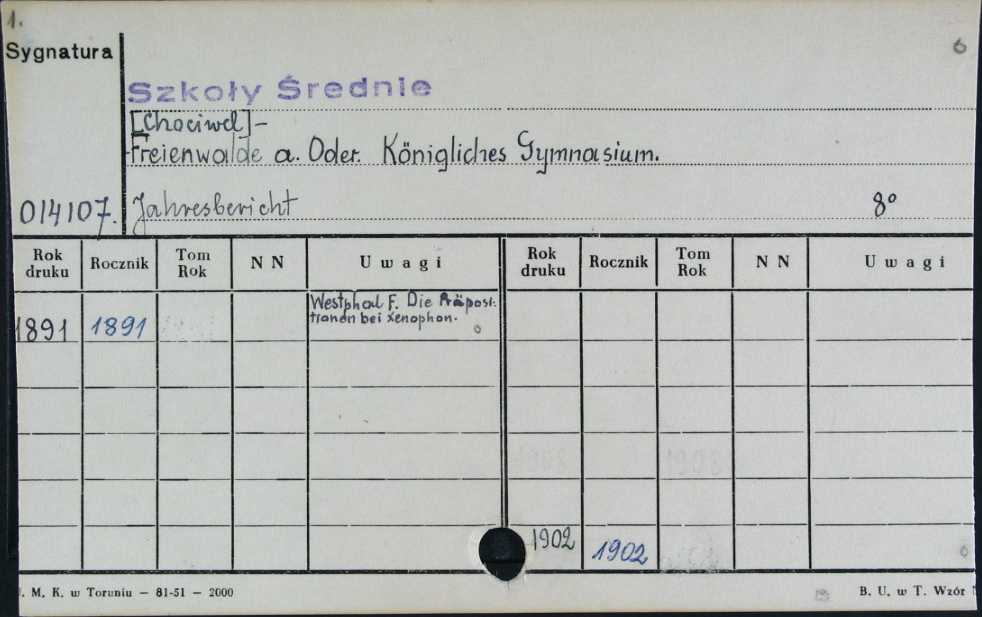 1.
6
Sygnatura
Szkoły Średnie
[Chociwel] -
Freienwalde a. Oder. Königliches Gymnasium.
014107. Jahresbericht 8°
Rok druku Rocznik Tom Rok N N Uwagi Rok druku Rocznik Tom Rok N N Uwagi
1891 1891 Westphal F. Die Präposi-
tionen bei Xenophon.
1902 1902
. M. K. w Toruniu — 81-51 — 2000 B. U. w T. Wzór